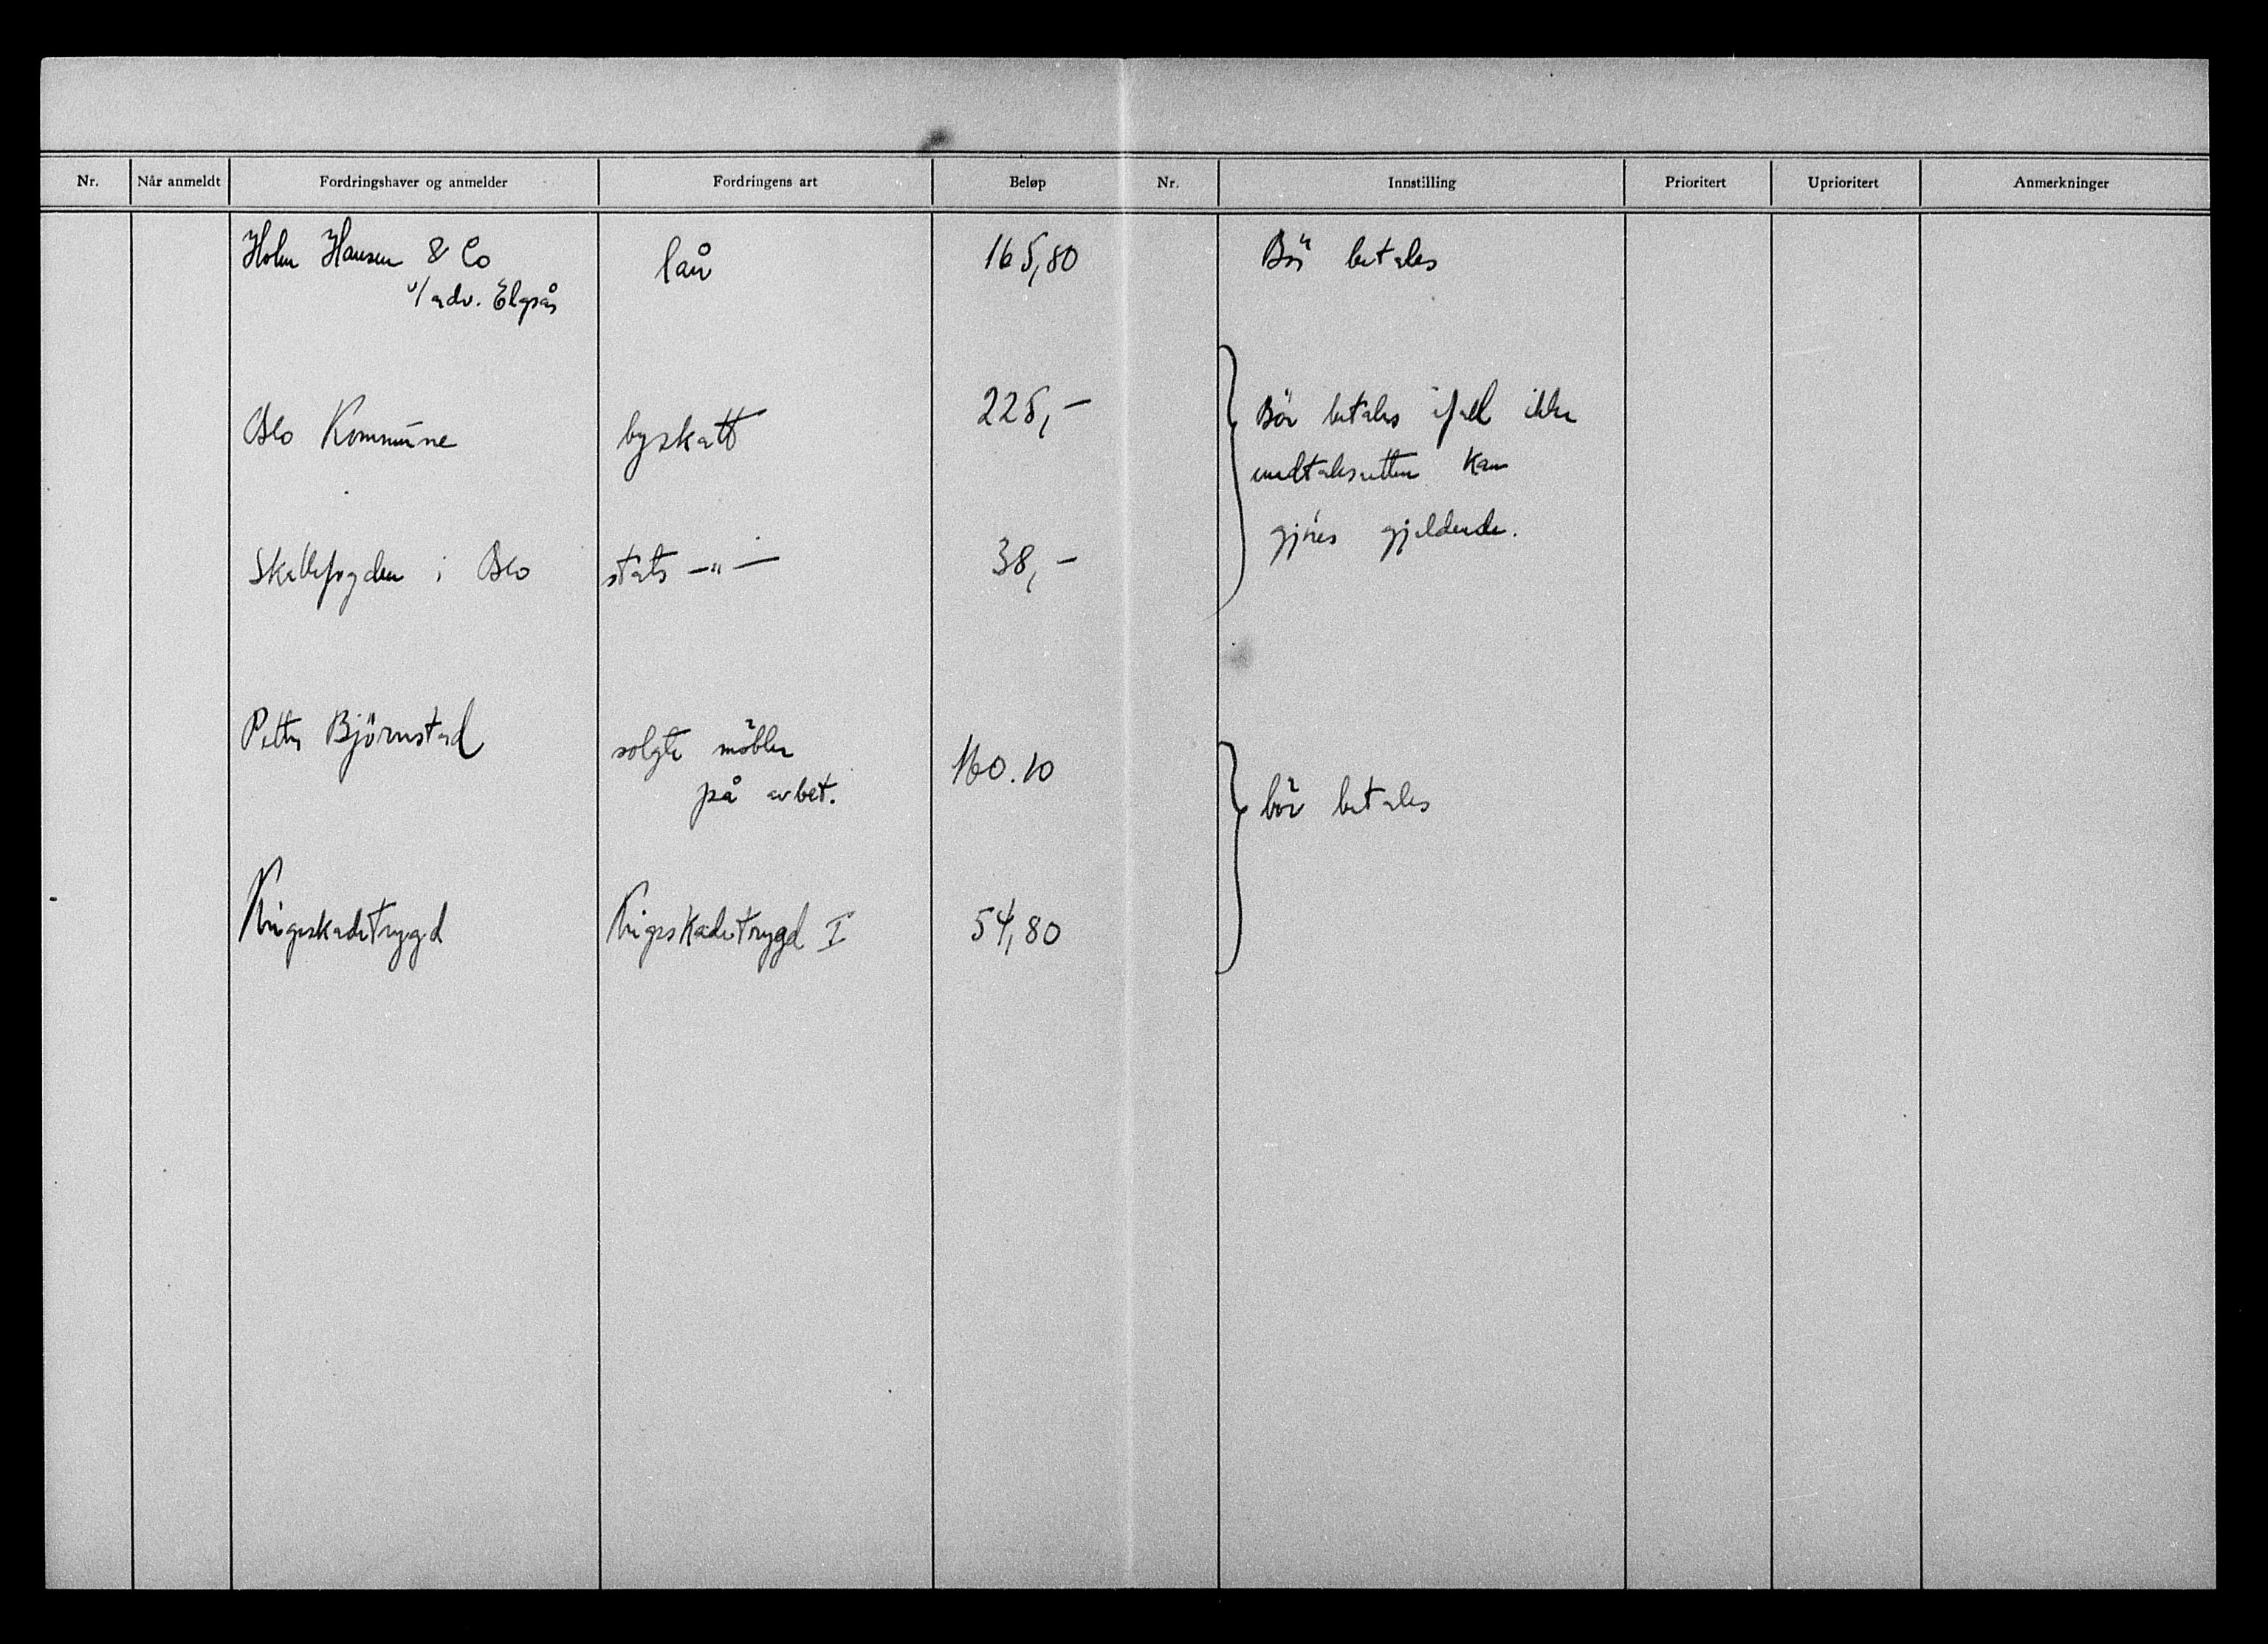 Nr. Når anmeldt Fordringshaver og anmelder Fordringens art Beløp Nr. Innstilling Prioritert Uprioritert Anmerkninger
Holm Hansen & Co lån 165,80 Bör betales
v/ adv. Elgsås
Oslo Kommune byskatt 225,- Bör betales ifall ikke
motregningsretten kan
gjöres gjeldende.
Skattefogden i Oslo stats -"- 38,-
Petter Björnstad solgte möbler 160.10
på avbet. bör betales
Krigsskadetrygd Krigsskadetrygd I 54,80